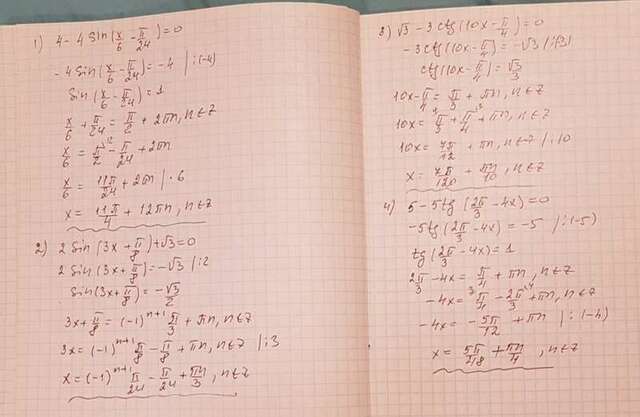 1) 4 - 4 sin(x/6 - π/24) = 0
- 4 sin(x/6 - π/24) = -4 / :(-4)
sin(x/6 - π/24) = 1
x/6 + π/24 = π/2 + 2πn, n∈Z
x/6 = π/2 - π/24 + 2πn
x/6 = 11π/24 + 2πn | · 6
x = 11π/4 + 12πn, n∈Z
2) 2 sin(3x + π/8) + √3 = 0
2 sin(3x + π/8) = -√3 / :2
sin(3x + π/8) = -√3/2
3x + π/8 = (-1)^(n+1) π/3 + πn, n∈Z
3x = (-1)^(n+1) π/8 - π/8 + πn, n∈Z / :3
x = (-1)^(n+1) π/24 - π/24 + πn/3, n∈Z
3) √3 - 3 ctg(10x - π/4) = 0
- 3 ctg(10x - π/4) = -√3 / :(-3)
ctg(10x - π/4) = √3/3
10x - π/4 = π/3 + πn, n∈Z
10x = π/3 + π/4 + πn, n∈Z
10x = 7π/12 + πn, n∈Z / :10
x = 7π/120 + πn/10, n∈Z
4) 5 - 5 tg(2π/3 - 4x) = 0
-5 tg(2π/3 - 4x) = -5 / :(-5)
tg(2π/3 - 4x) = 1
2π/3 - 4x = π/4 + πn, n∈Z
- 4x = π/4 - 2π/3 + πn, n∈Z
- 4x = - 5π/12 + πn / :(-4)
x = 5π/48 + πn/4, n∈Z